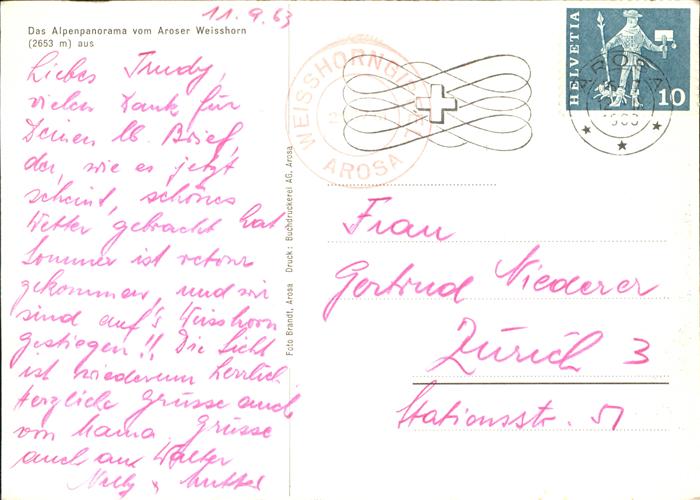 11.9.63
Das Alpenpanorama vom Aroser Weisshorn
(2653 m) aus
Liebes Trudy,
vielen Dank für
Deinen lb. Brief,
der, wie es jetzt
scheint, schönes
Wetter gebracht hat
Sommer ist retour
gekommen, und wir
sind auf's Weisshorn
gestiegen!! Die Sicht
ist wiederum herrlich
Herzliche Grüsse auch
von Mama Grüsse
auch an Walter
Nelly & Mutter
Foto Brandt, Arosa Druck: Buchdruckerei AG, Arosa
WEISSHORNGIPFEL
AROSA
HELVETIA
10
AROSA
1963
Frau
Gertrud Niederer
Zürich 3
Stationsstr. 51